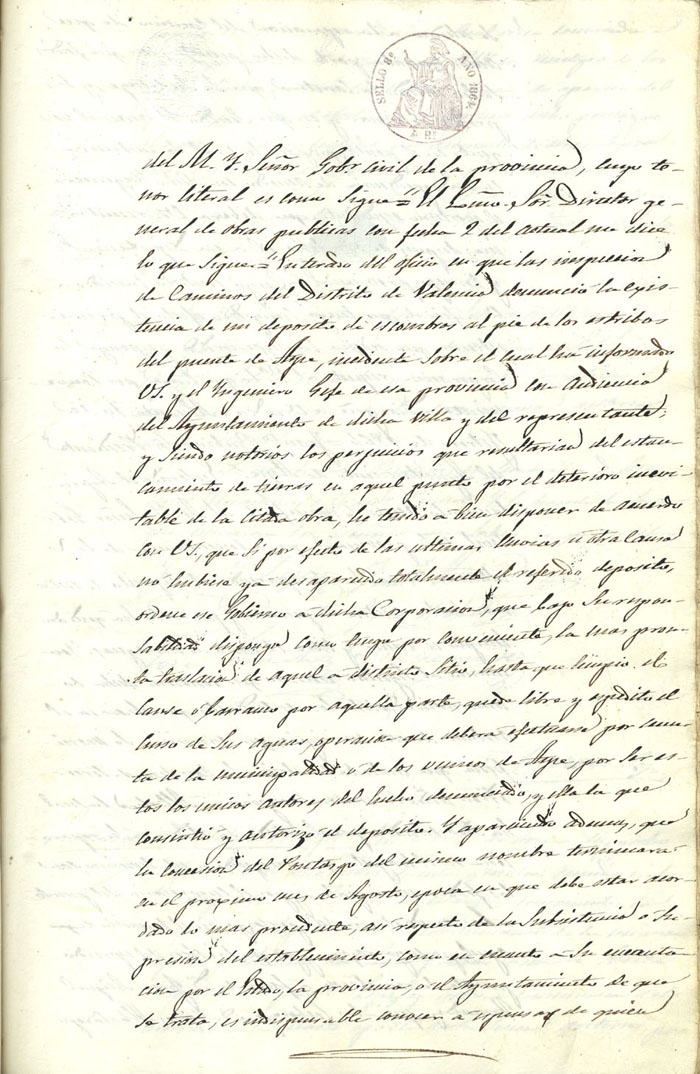 SELLO 8º AÑO 1864.
4 Rs
del M. Y. Señor Gobr. Civil de la provincia, cuyo te-
nor literal es como sigue = "El Ilmo. Sor. Director ge-
neral de obras publicas con fecha 2 del actual me dice
lo que sigue = "Enterado del oficio en que las inspeccion
de Caminos del Distrito de Valencia denuncio la exis-
tencia de un deposito de escombros al pie de los estribos
del puente de Aspe, incidente sobre el cual ha informado
VS. y el Ingeniero Gefe de esa provincia con Audiencia
del Ayuntamiento de dicha villa y del representante;
y siendo notorios los perjuicios que resultarian del estan-
camiento de tierras en aquel punto por el deterioro inevi-
table de la citada obra, he tenido a bien disponer de acuerdo
con VS. que si por efecto de las ultimas lluvias u otra causa
no hubiese ya desaparecido totalmente el referido deposito,
ordene ese Gobierno a dicha Corporacion, que bajo su respon-
sabilidad disponga como tenga por conveniente, la mas pron-
ta traslacion de aquel a distinto sitio, hasta que limpio el
cause ó barranco por aquella parte, quede libre y espedito el
curso de sus aguas, operacion que debera efectuarse por cuen-
ta de la municipalidad o de los vecinos de Aspe, por ser es-
tos los unicos autores del hecho denunciado, y ella la que
consintió y autorizo el deposito. Y apareciendo ademas, que
la concesion del Pontazgo del mismo nombre terminara
en el proximo mes de Agosto, epoca en que debe estar acor-
dado lo mas procedente, asi respecto de la subsistencia o su-
presion del establecimiento, como en cuanto a su incauta-
cion por el Estado, la provincia, o el Ayuntamiento de que
se trata, es indispensable conocer a espensas de quien